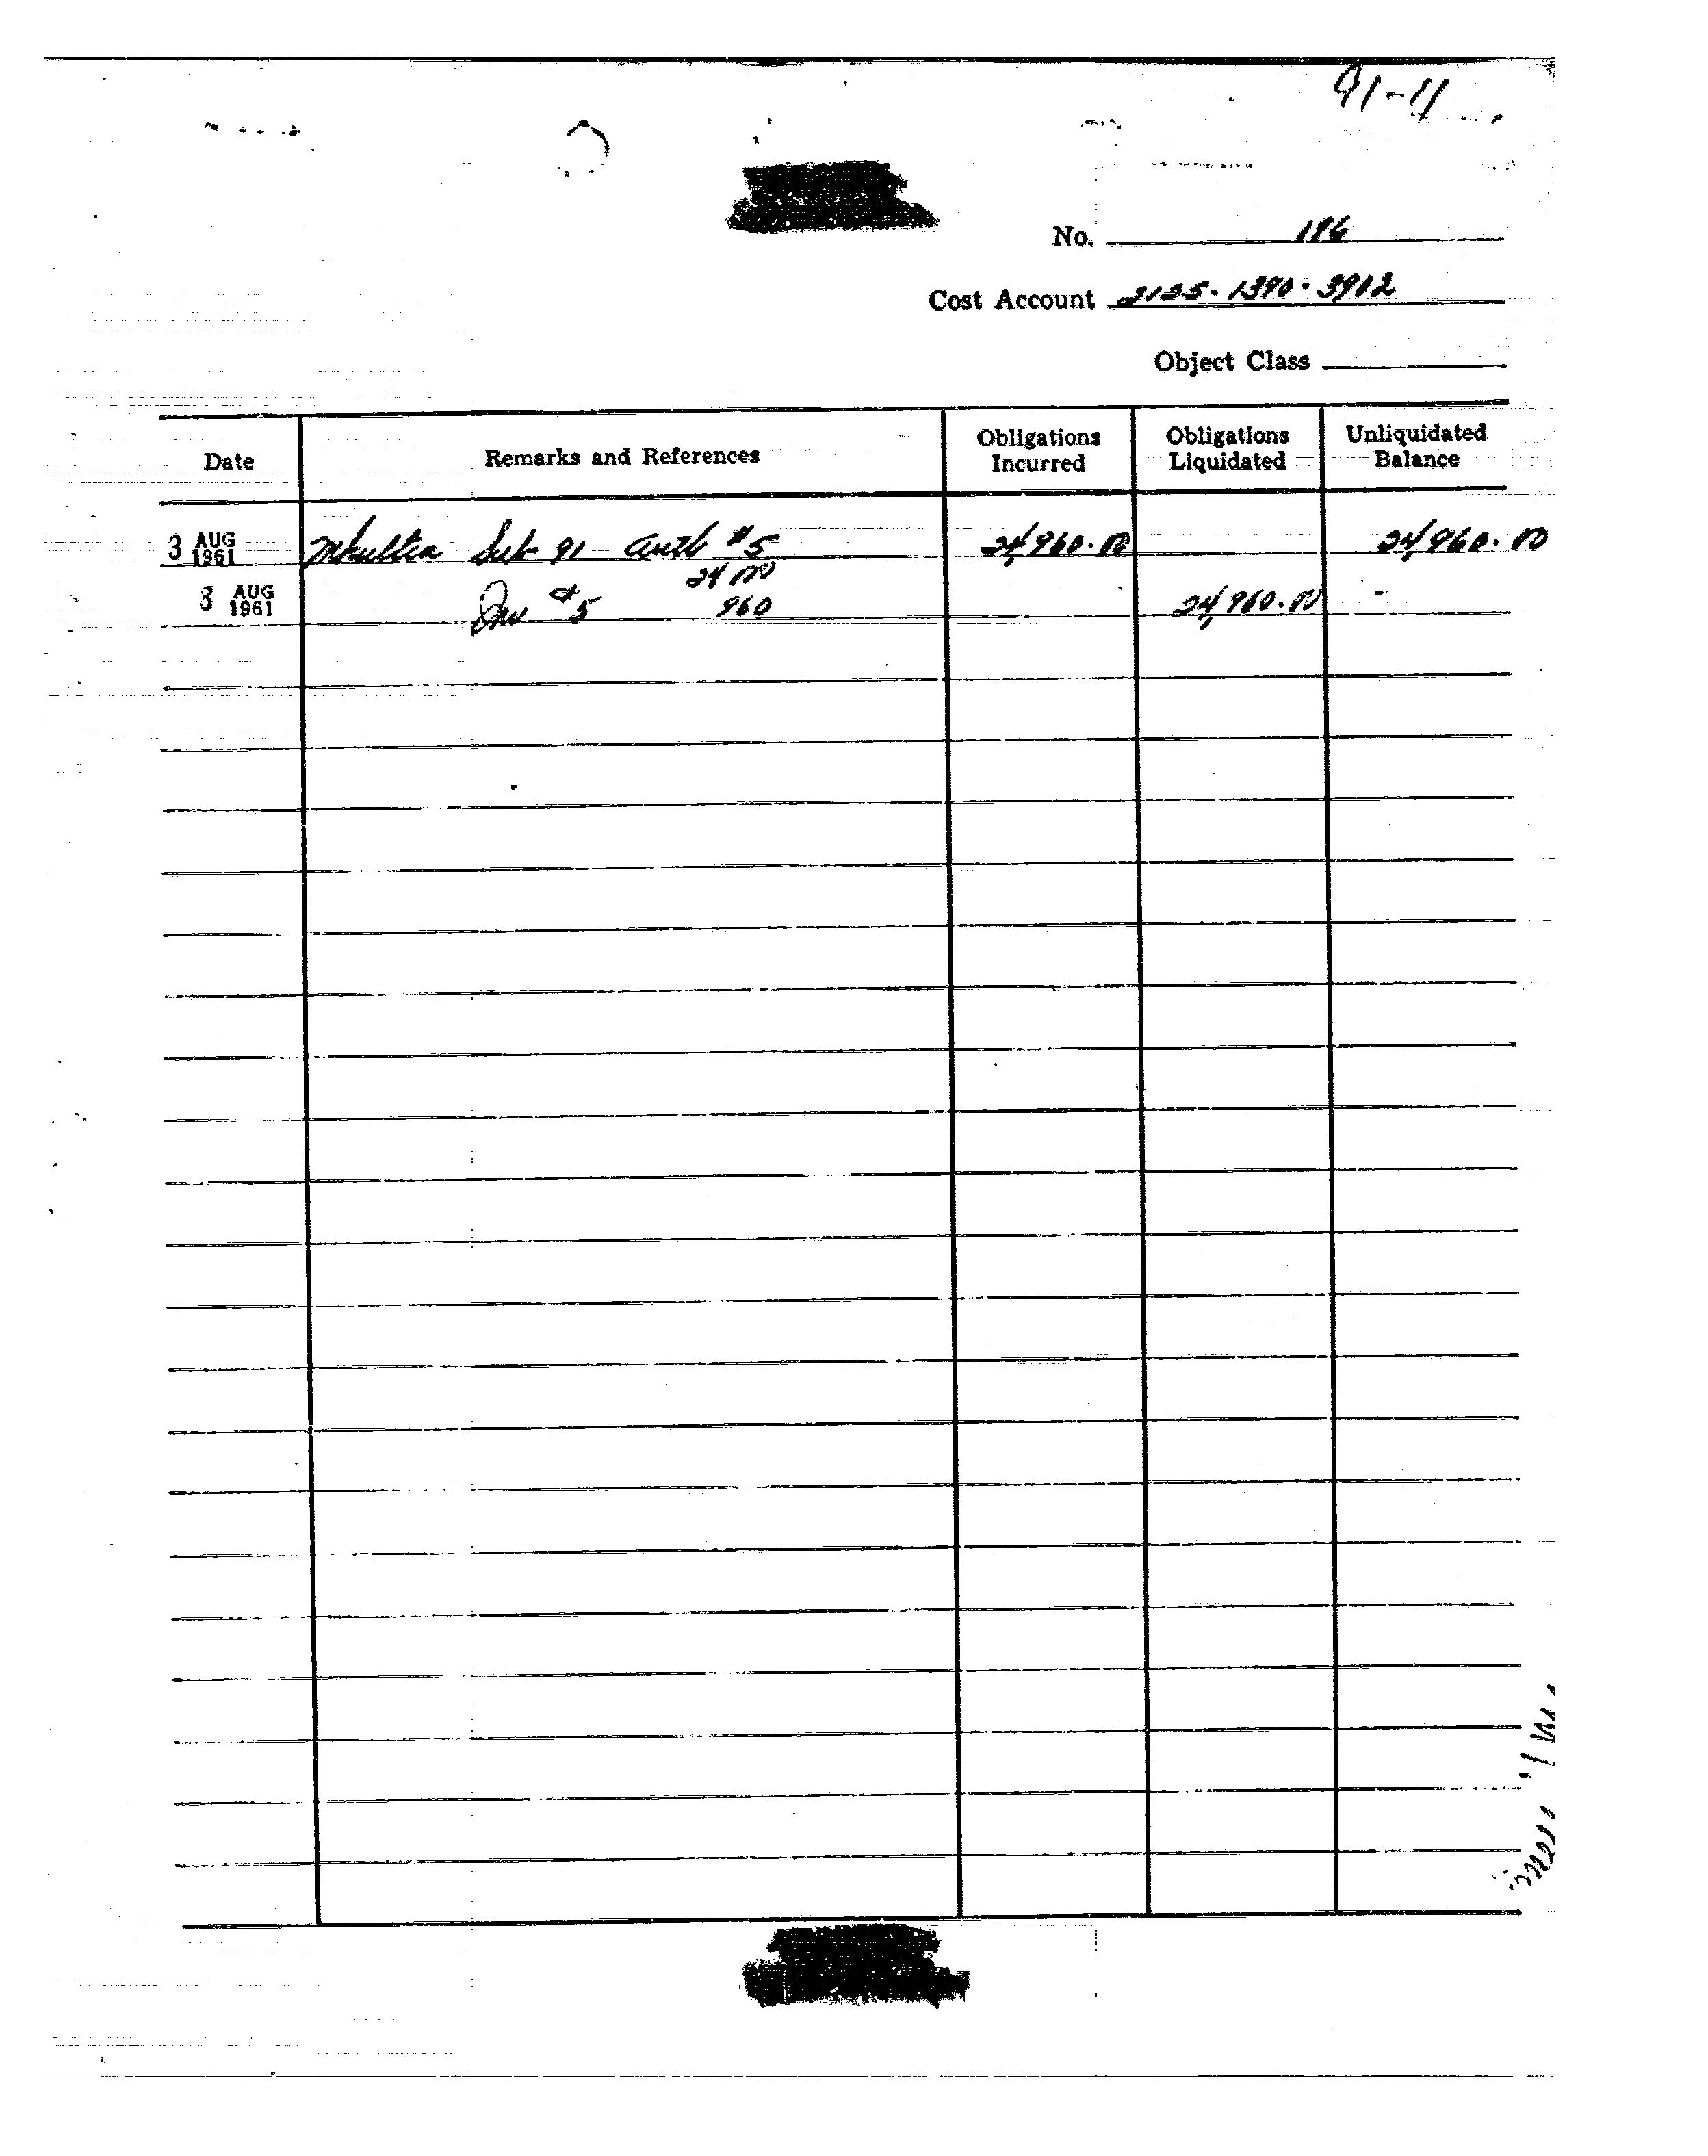 91-11
No. 196
Cost Account 2125-1390-3902
Object Class
Date Remarks and References Obligations Incurred Obligations Liquidated Unliquidated Balance
3 AUG 1961 Mkultra Sub 91 Auth #5 24,960.00 24,960.00
24 000
3 AUG 1961 Inv #5 960 24,960.00 -